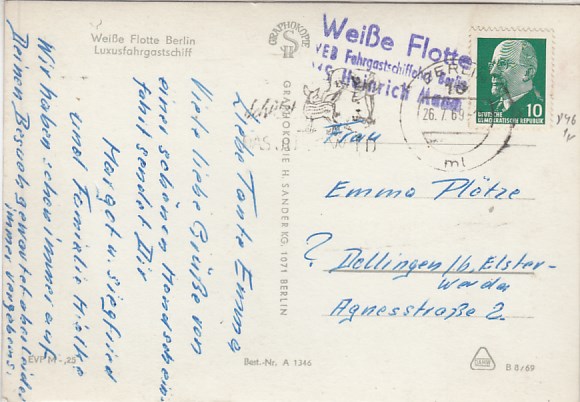 Weiße Flotte Berlin
Luxusfahrgastschiff
Liebe Tante Emma
Viele liebe Grüße von
einer schönen Mondschein-
fahrt sendet Dir
Margot u. Siegfried
und Familie
Wir haben schon immer auf
Deinen Besuch gewartet aber leider
immer vergebens.
EVP M -,25
GRAPHOKOPIE
GRAPHOKOPIE H. SANDER KG, 1071 BERLIN
Best.-Nr. A 1346
Weiße Flotte
VEB Fahrgastschiffahrt Berlin
MS Heinrich Mann
BERLIN
18
26.7.69
ml
10
DEUTSCHE
DEMOKRATISCHE REPUBLIK
Frau
Emma Plötze
? Dollingen/b. Elster-
werda
Agnesstraße 2.
B 8/69